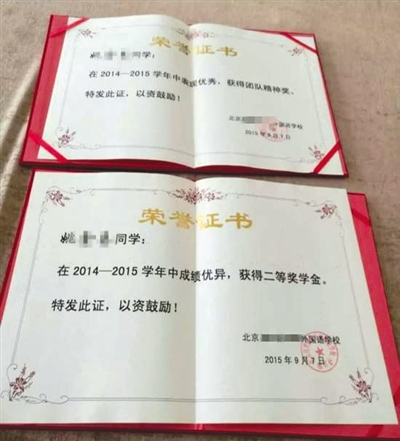 荣誉证书
姚 同学：
在2014—2015学年中表现优秀，获得团队精神奖。
特发此证，以资鼓励！
北京 外国语学校
2015年9月1日
荣誉证书
姚 同学：
在2014—2015学年中成绩优异，获得二等奖学金。
特发此证，以资鼓励！
北京 外国语学校
2015年9月1日